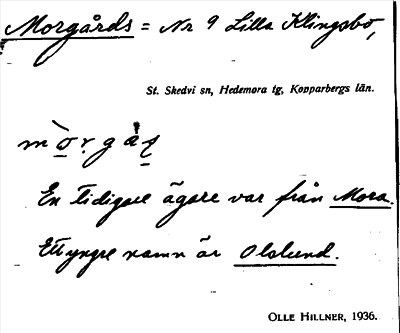 Morgårds = Nr 9 Lilla Klingsbo,
St. Skedvi sn, Hedemora tg, Kopparbergs län.
En tidigare ägare var från Mora.
Ett yngre namn är Olslund.
OLLE HILLNER, 1936.